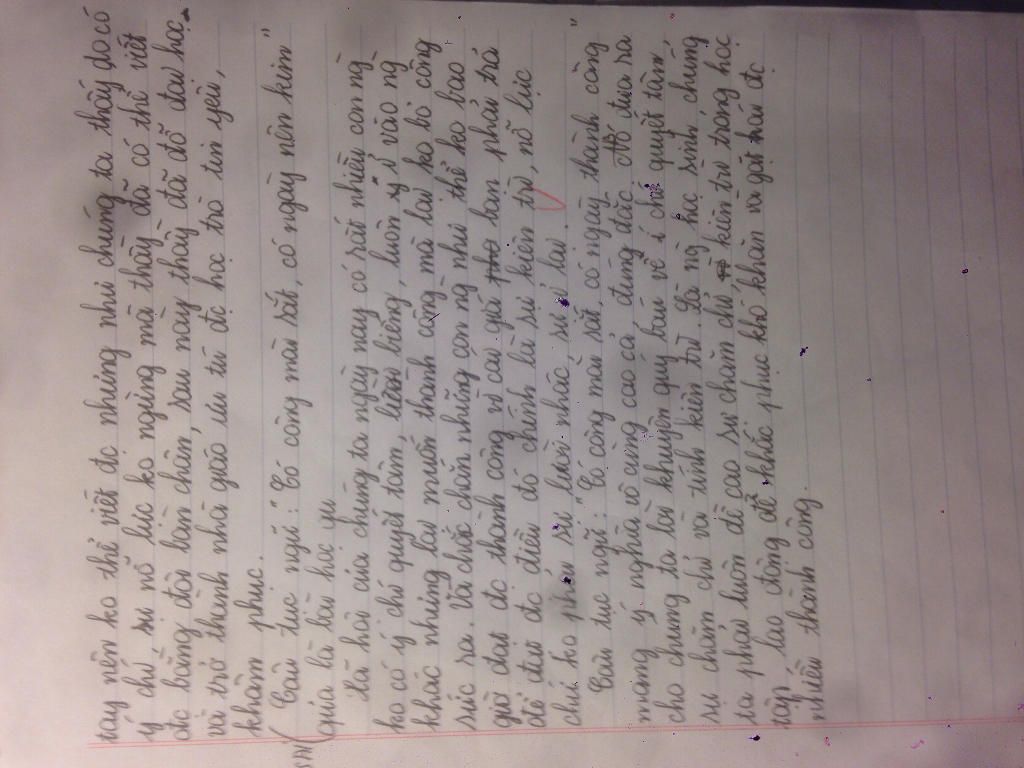 tay nên ko thể viết đc nhưng như chúng ta thấy do có
ý chí, sự nỗ lực ko ngừng mà thầy đã có thể viết
đc bằng đôi bàn chân, sau này thầy đã đỗ đại học
và trở thành nhà giáo ưu tú đc học trò tin yêu,
khâm phục.
Câu tục ngữ: "Có công mài sắt, có ngày nên kim"
quả là bài học quý
Xã hội của chúng ta ngày nay có rất nhiều con ng
ko có ý chí quyết tâm, lười biếng, luôn ỷ vào ng
khác nhưng lại muốn thành công mà lại ko bỏ công
sức ra. Và chắc chắn những con ng như thế ko bao
giờ đạt đc thành công vì cái giá bạn phải trả
để đạt đc điều đó chính là sự kiên trì, nỗ lực
chứ ko phải sự lười nhác, sự ỷ lại.
Câu tục ngữ: "Có công mài sắt, có ngày thành công"
mang ý nghĩa vô cùng cao cả, đúng đắn. Đó đưa ra
cho chúng ta lời khuyên quý báu về ý chí quyết tâm,
sự chăm chỉ và tính kiên trì. Là ng học sinh chúng
ta phải luôn đề cao sự chăm chỉ, kiên trì trong học
tập, lao động để khắc phục khó khăn và gặt hái đc
nhiều thành công.